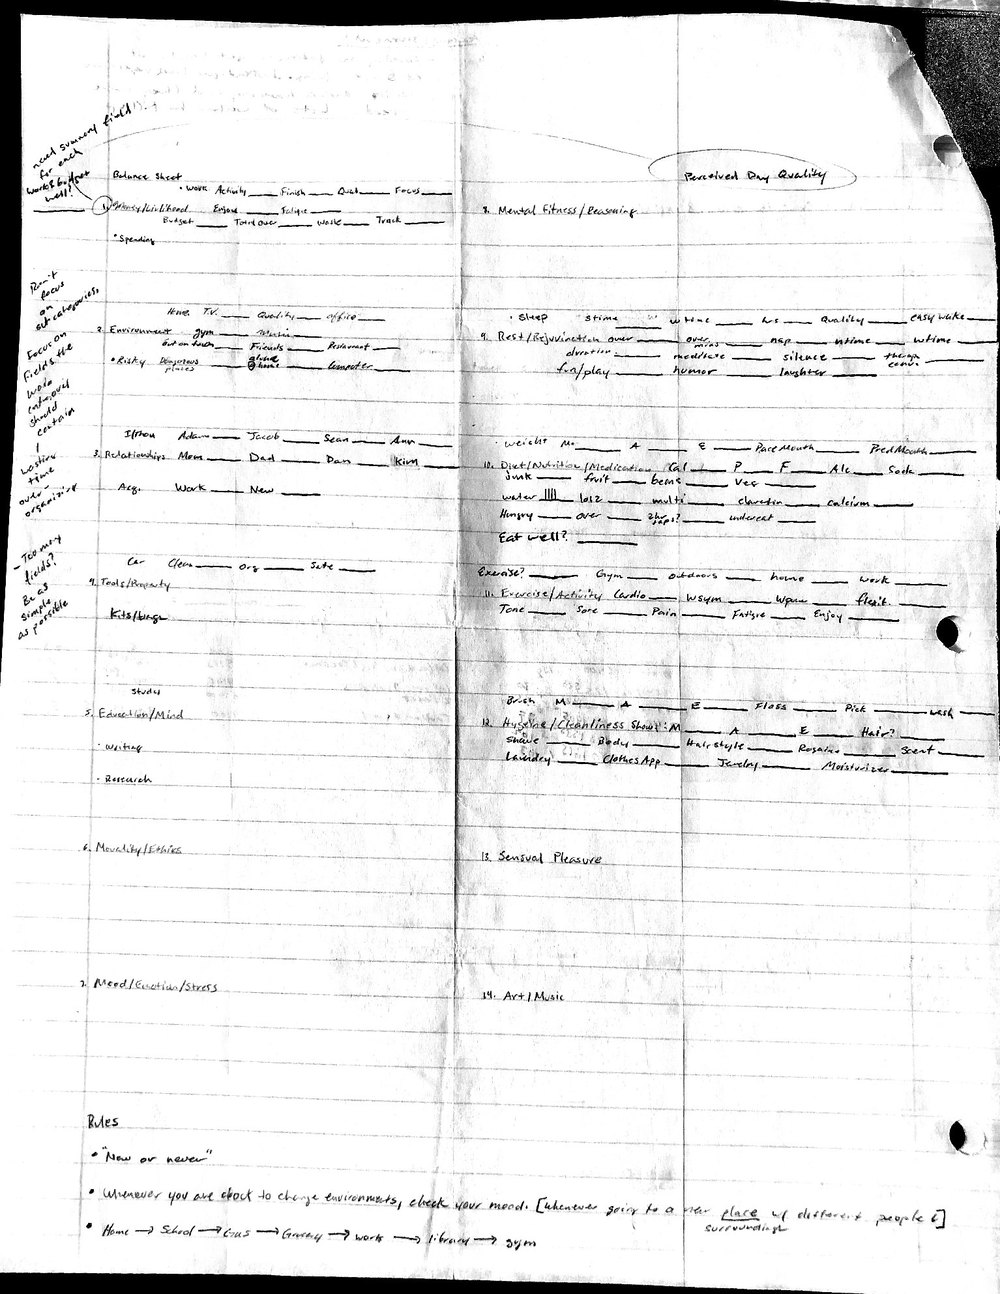 need summary field
for each
work & budget
well?
Perceived Day Quality
Balance Sheet
• Work Activity ___ Finish ___ Qual ___ Focus ___
1. Money/Livlihood Enjoy ___ Fatigue ___
Budget ___ Total over ___ waste ___ Track ___
• Spending
Don't
focus
on
subcategories,
Focus on
fields the
work
entered
should
contain
wasting
time
over-
organizing
- Too many
fields?
Be as
simple
as possible
Home T.V. ___ Quality ___ office ___
2. Environment gym ___ music ___
out on town ___ Friends ___ Restaurant ___
• Risky Dangerous places ___ alone @ home ___ Computer ___
Adam ___ Jacob ___ Sean ___ Ann ___
3. Relationships Mom ___ Dad ___ Dan ___ Kim ___
Acq. Work ___ New ___
Car Clean ___ org ___ Safe ___
4. Tools/Property
Kits/bags
Studies
5. Education/Mind
• Writing
• Research
6. Morality/Ethics
7. Mood/Emotion/Stress
8. Mental Fitness/Reasoning
• Sleep stime ___ wtime ___ hrs ___ Quality ___ easy wake ___
9. Rest/Rejuvination over ___ over mins ___ nap ___ ntime ___ wtime ___
duration ___ meditate ___ silence ___
fun/play ___ humor ___ laughter ___
• Weight M ___ A ___ E ___ Pace Month ___ Pred Month ___
10. Diet/Nutrition/Medication Cal ___ P ___ F ___ Alc ___ Soda ___
junk ___ fruit ___ beans ___ Veg ___
water ___ multi ___ claretin ___ calcium ___
Hungry ___ over ___ 2hr gaps? ___ undereat ___
Eat well? ___
Exercise? ___ Gym ___ outdoors ___ home ___ work ___
11. Exercise/Activity Cardio ___ Wgym ___ ___ flexit. ___
Tone ___ Sore ___ Pain ___ Fatigue ___ Enjoy ___
Brush M ___ A ___ E ___ Floss ___ Pick ___ wash ___
12. Hygeine/Cleanliness Shower: M ___ A ___ E ___ Hair? ___
Shave ___ Body ___ Hairstyle ___ Rogaine ___ Scent ___
Laundry ___ Clothes App ___ Jewelry ___ Moisturizer ___
13. Sensual Pleasure
14. Art/Music
Rules
• "Now or never"
• Whenever you are about to change environments, check your mood. [whenever going to a new place w/ different people &]
surroundings
• Home → School → Gas → Grocery → work → library → gym